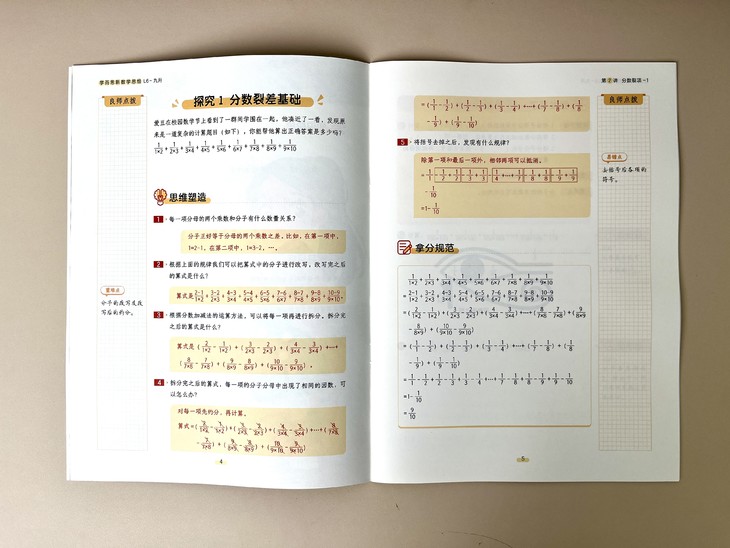 学而思新数学思维 L6-九升
良师点拨
探究 1 分数裂差基础
爱豆在校园数学节上看到了一群同学围在一起,他凑近了一看,发现原
来是一道复杂的计算题目(如下),你能帮他算出正确答案是多少吗?
1/1×2+1/2×3+1/3×4+1/4×5+1/5×6+1/6×7+1/7×8+1/8×9+1/9×10
思维塑造
1 · 每一项分母的两个乘数和分子有什么数量关系?
分子正好等于分母的两个乘数之差,比如,在第一项中,
1=2-1,在第二项中,1=3-2,…。
2 · 根据上面的规律我们可以把算式中的分子进行改写,改写完之后
的算式是什么?
算式是 2-1/1×2+3-2/2×3+4-3/3×4+5-4/4×5+6-5/5×6+7-6/6×7+8-7/7×8+9-8/8×9+10-9/9×10。
易错点
分子的改写及改
写后的约分。
3 · 根据分数加减法的运算方法,可以将每一项再进行拆分,拆分完
之后的算式是什么?
算式是(2/1×2-1/1×2)+(3/2×3-2/2×3)+(4/3×4-3/3×4)+…+(
8/7×8-7/7×8)+(9/8×9-8/8×9)+(10/9×10-9/9×10)。
4 · 拆分完之后的算式,每一项的分子分母中出现了相同的因数,可
以怎么办?
对每一项先约分,再计算。
算式=(2/1×2-1/1×2)+(3/2×3-2/2×3)+(4/3×4-3/3×4)+…+(8/7×8
-7/7×8)+(9/8×9-8/8×9)+(10/9×10-9/9×10)
4
第 2 讲 分数裂项-1
良师点拨
=(1/1-1/2)+(1/2-1/3)+(1/3-1/4)+…+(1/7-1/8)+(1/8
-1/9)+(1/9-1/10)
5 · 将括号去掉之后,发现有什么规律?
除第一项和最后一项外,相邻两项可以抵消。
=1/1-1/2+1/2-1/3+1/3-1/4+…+1/7-1/8+1/8-1/9+1/9
-1/10
=1-1/10
易错点
去括号后各项的
符号。
拿分规范
1/1×2+1/2×3+1/3×4+1/4×5+1/5×6+1/6×7+1/7×8+1/8×9+1/9×10
=2-1/1×2+3-2/2×3+4-3/3×4+5-4/4×5+6-5/5×6+7-6/6×7+8-7/7×8+9-8/8×9+10-9/9×10
=(2/1×2-1/1×2)+(3/2×3-2/2×3)+(4/3×4-3/3×4)+…+(8/7×8-7/7×8)+(9/8×9
-8/8×9)+(10/9×10-9/9×10)
=(1/1-1/2)+(1/2-1/3)+(1/3-1/4)+…+(1/7-1/8)+(1/8
-1/9)+(1/9-1/10)
=1/1-1/2+1/2-1/3+1/3-1/4+…+1/7-1/8+1/8-1/9+1/9-1/10
=1-1/10
=9/10
5